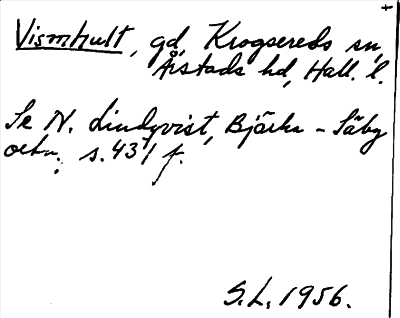 Vismhult, gd, Krogsereds sn,
Årstads hd, Hall. l.
Se N. Lindqvist, Bjärka - Säby
ortn. s. 431 f.
S.L. 1956.